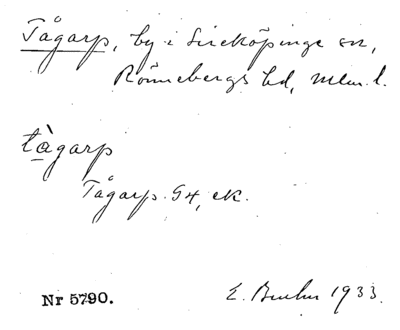 Tågarp, by i Sireköpinge sn,
Rönnebergs hd, Mlm. l.
tàgarp
Tågarp. G4, ek.
Nr 5790.
E. 1933.